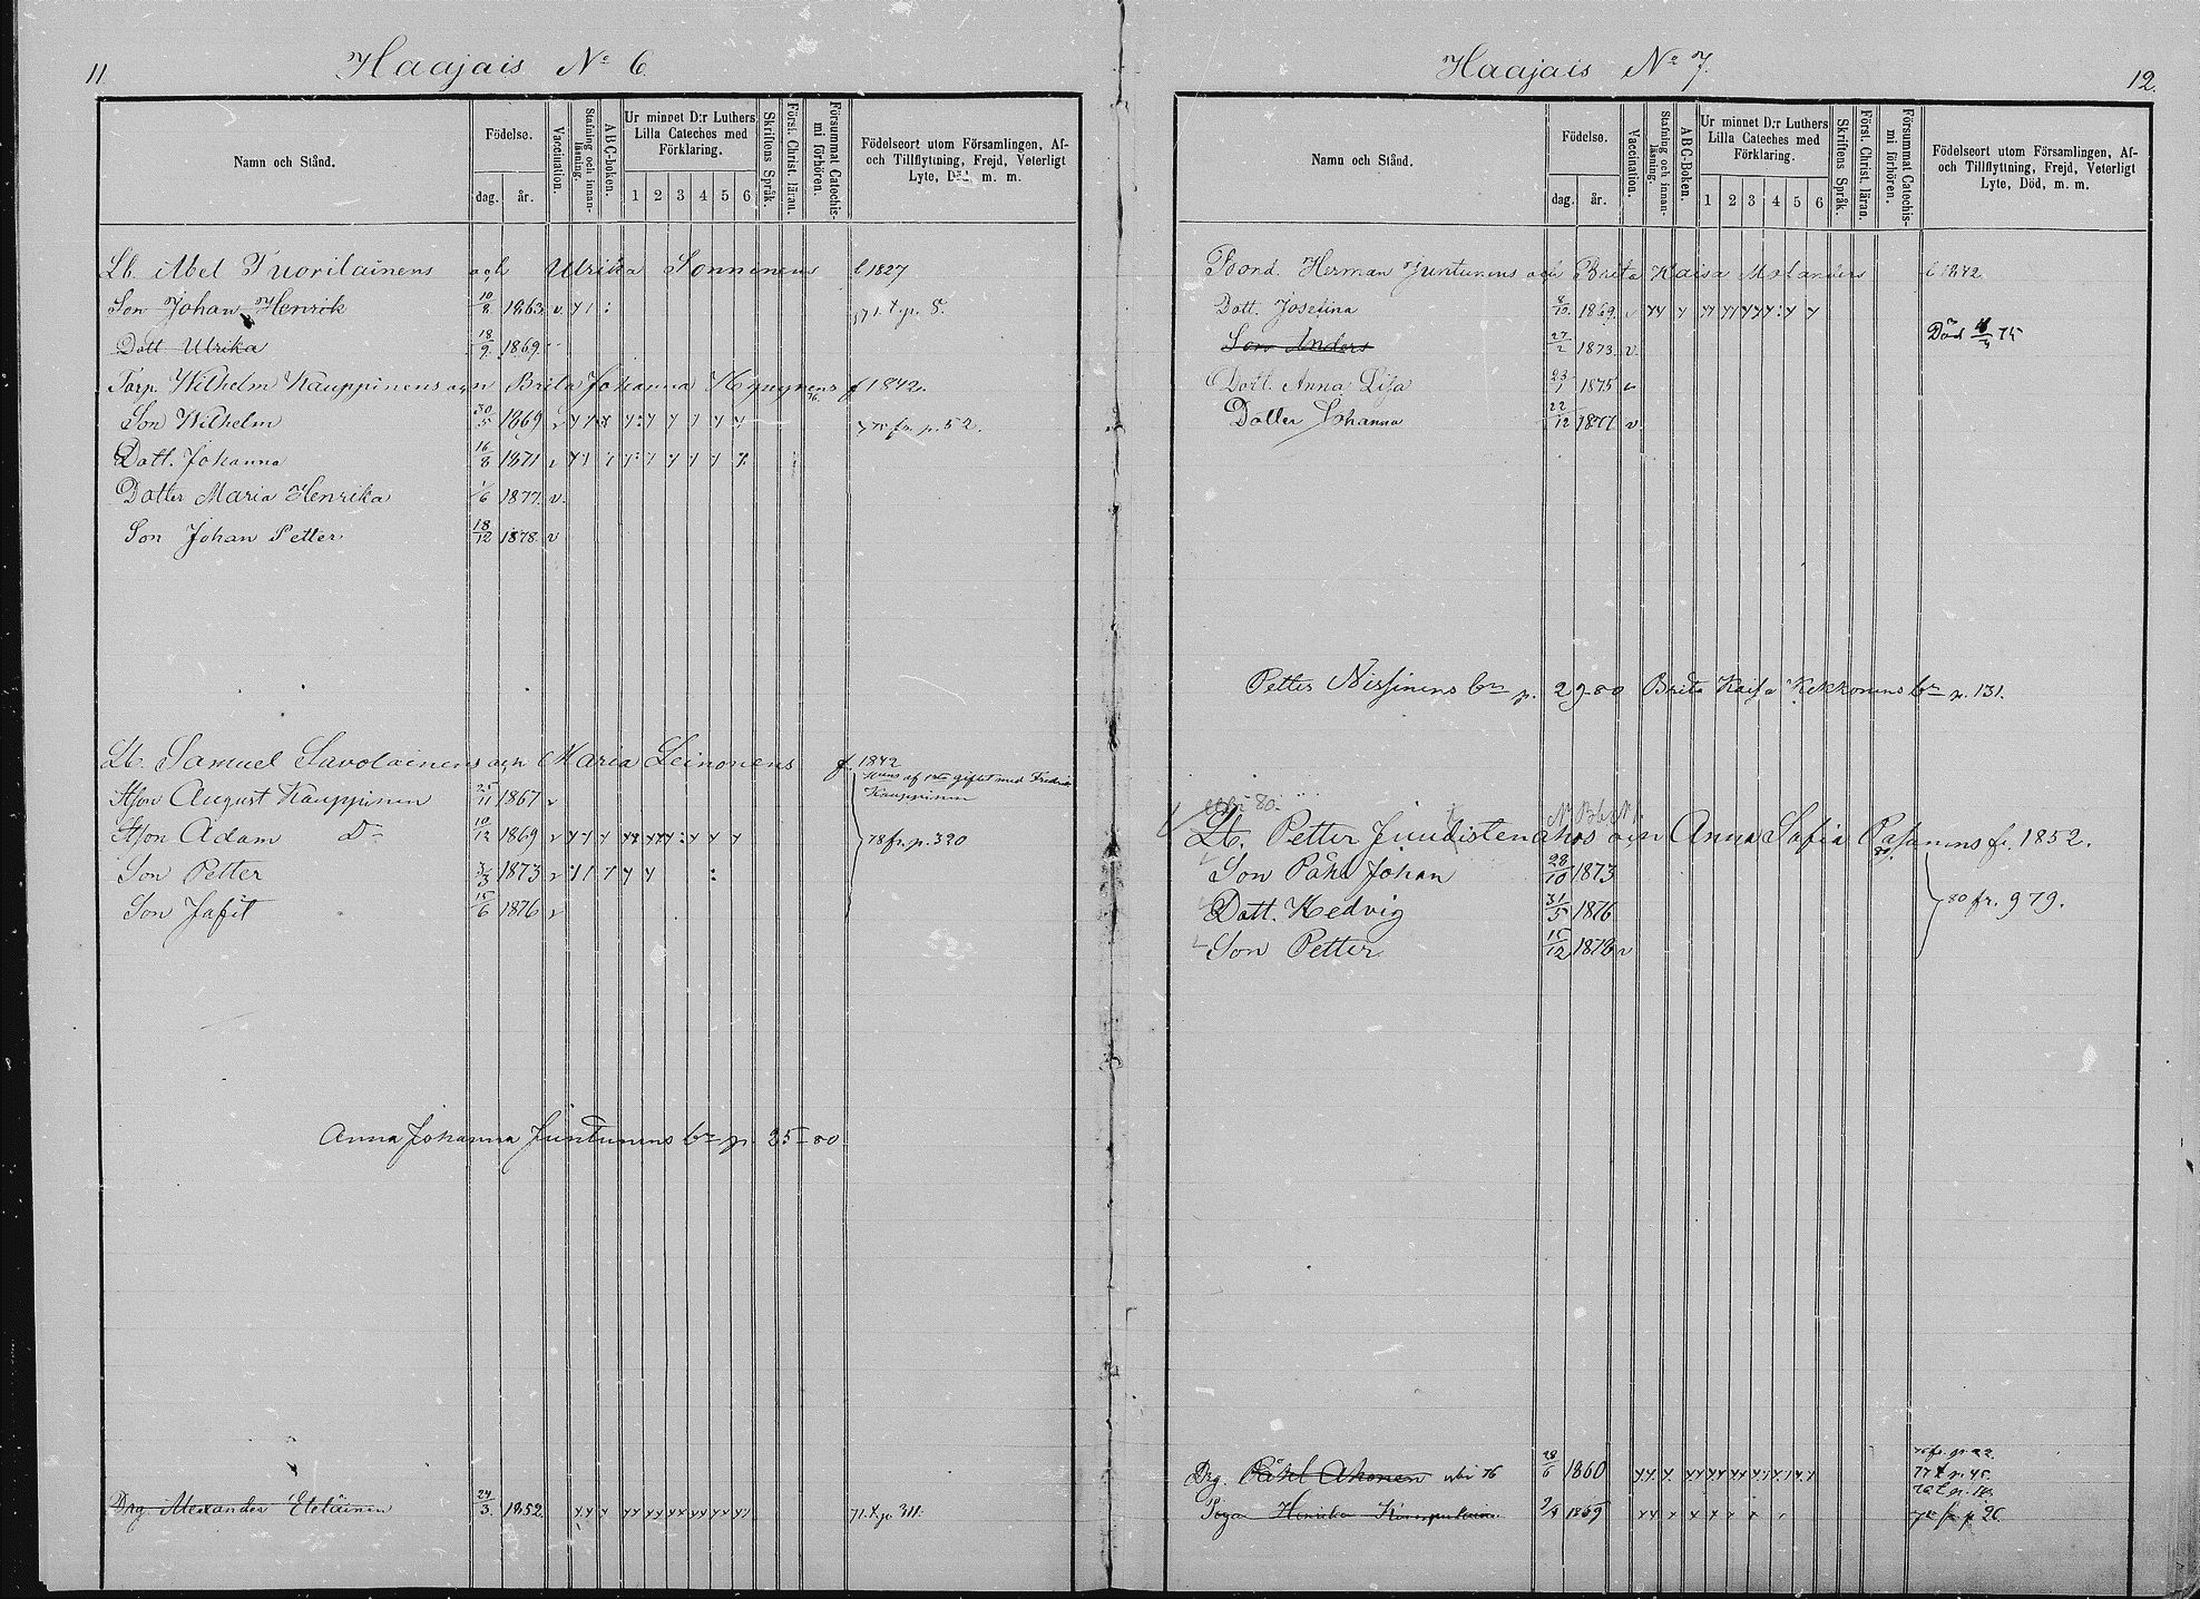 11
Haajais No 6.
Namn och Stånd.
Födelse.
dag.
år.
Vaccination.
Stafning och innan-läsning.
ABC-boken.
Ur minnet D:r Luthers Lilla Cateches med Förklaring.
1 2 3 4 5 6
Skriftens Språk.
Först. Christ. läran.
Försummat Catechis-mi förhören.
Födelseort utom Församlingen, Af- och Tillflyttning, Frejd, Veterligt Lyte, Död, m. m.
Lb. Abel Tuorilainens och Ulrika Sonninens l 1827
Son Johan Henrik 10/8 1863. v
Dott Ulrika 18/9 1869.
Torp. Wilhelm Kauppinens och Brita Johanna f 1842.
Son Wilhelm 30/5 1869 v fr. p. 52.
Dott. Johanna 16/8 1871 v
Dotter Maria Henrika 1/6 1877. v.
Son Johan Petter 18/12 1878. v
Lb. Samuel Savolainens och Maria Leinonens f. 1842
Hans af 1sta giftet med Fredrik Kauppinen
Stson August Kauppinen 25/11 1867 v
Stson Adam Do 10/12 1869 v 78 fr. p. 320
Son Petter 3/3 1873 v
Son Jafet 15/6 1876 v
Anna Johanna Juntunens bn p. 25-80
Drg. Alexander Eteläinen 24/3. 1852. 71. t. p. 311.
12.
Haajais No 7.
Namn och Stånd.
Födelse.
dag.
år.
Vaccination.
Stafning och innan-läsning.
ABC-Boken.
Ur minnet D:r Luthers Lilla Cateches med Förklaring.
1 2 3 4 5 6
Skriftens Språk.
Först. Christ. läran.
Försummat Catechis-mi förhören.
Födelseort utom Församlingen, Af- och Tillflyttning, Frejd, Veterligt Lyte, Död, m. m.
Bond. Herman Juntunens och Brita Kaisa Molanders l 1842
Dott. Josefina 8/10. 1869.
Son Anders 27/2 1873. v. Död 75
Dott. Anna Lisa 23/1 1875 v
Dotter Johanna 22/12 1877. v
Petter Nissinens bn p. 29-80 Brita Kaisa Kekkonens bn p. 131.
Lb. Petter och Anna Sofia Pasanens fr. 1852.
Son Påhl Johan 28/10 1873
Dott. Hedvig 31/5 1876 80 fr. 979.
Son Petter 15/12 1878 v
Drg. Påhl Ahonen 76 28/6 1860 76 fr. p. 22. 77 t p. 45.
Piga Henrika 2/4 1859 p 26.